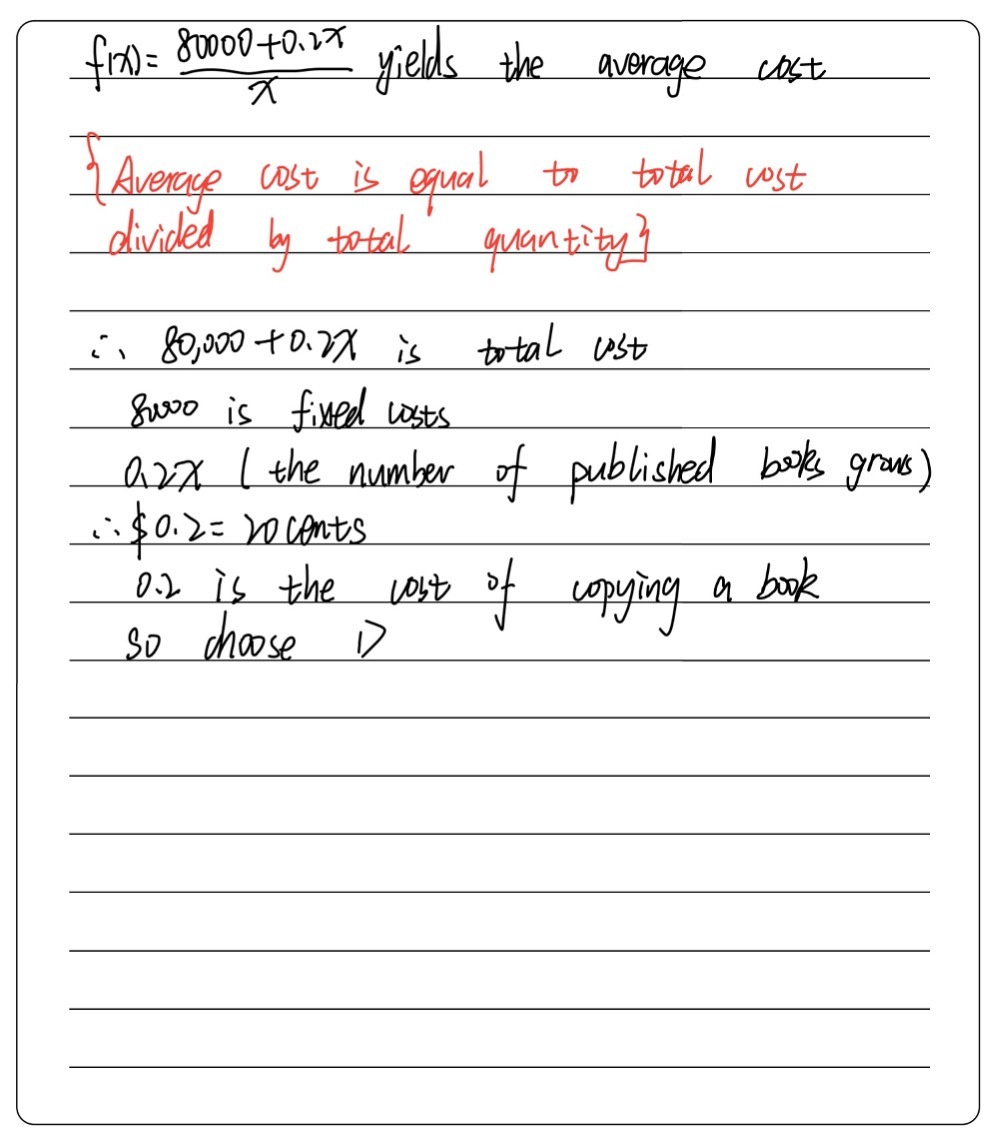 f(x)= (80000+0.2x)/x yields the average cost
{Average cost is equal to total cost
divided by total quantity}
∴ 80,000+0.2x is total cost
80000 is fixed costs
0.2x (the number of published books grows)
∴ $0.2=20cents
0.2 is the cost of copying a book
so choose D